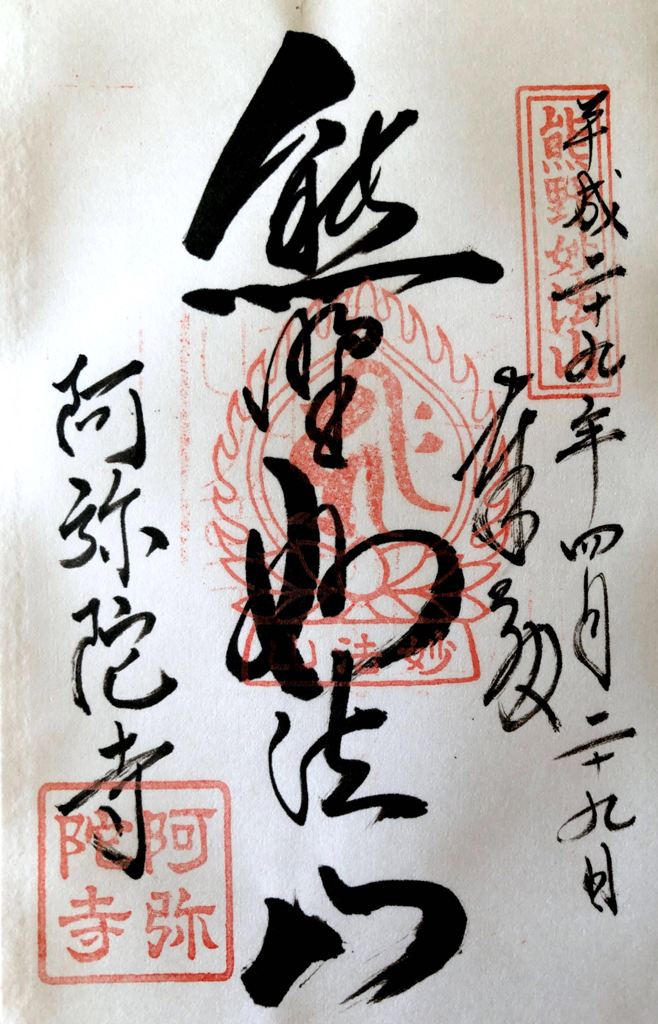 平成二十九年四月二十九日
熊野妙法山
奉拝
熊野妙法山
妙法山
阿弥陀寺
阿弥陀寺